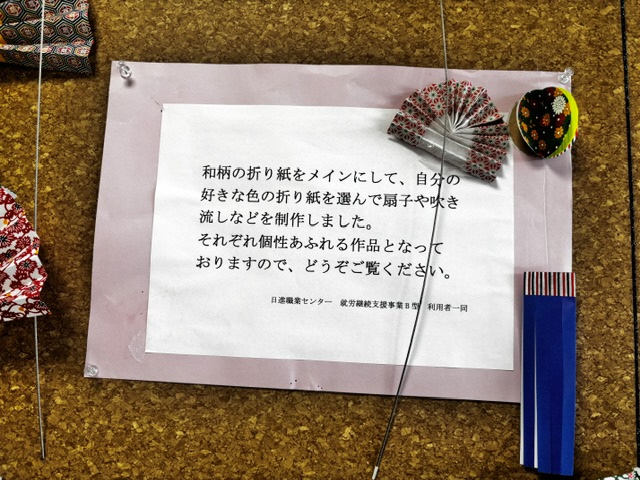 和柄の折り紙をメインにして、自分の
好きな色の折り紙を選んで扇子や吹き
流しなどを制作しました。
それぞれ個性あふれる作品となって
おりますので、どうぞご覧ください。
日進職業センター　就労継続支援事業Ｂ型　利用者一同